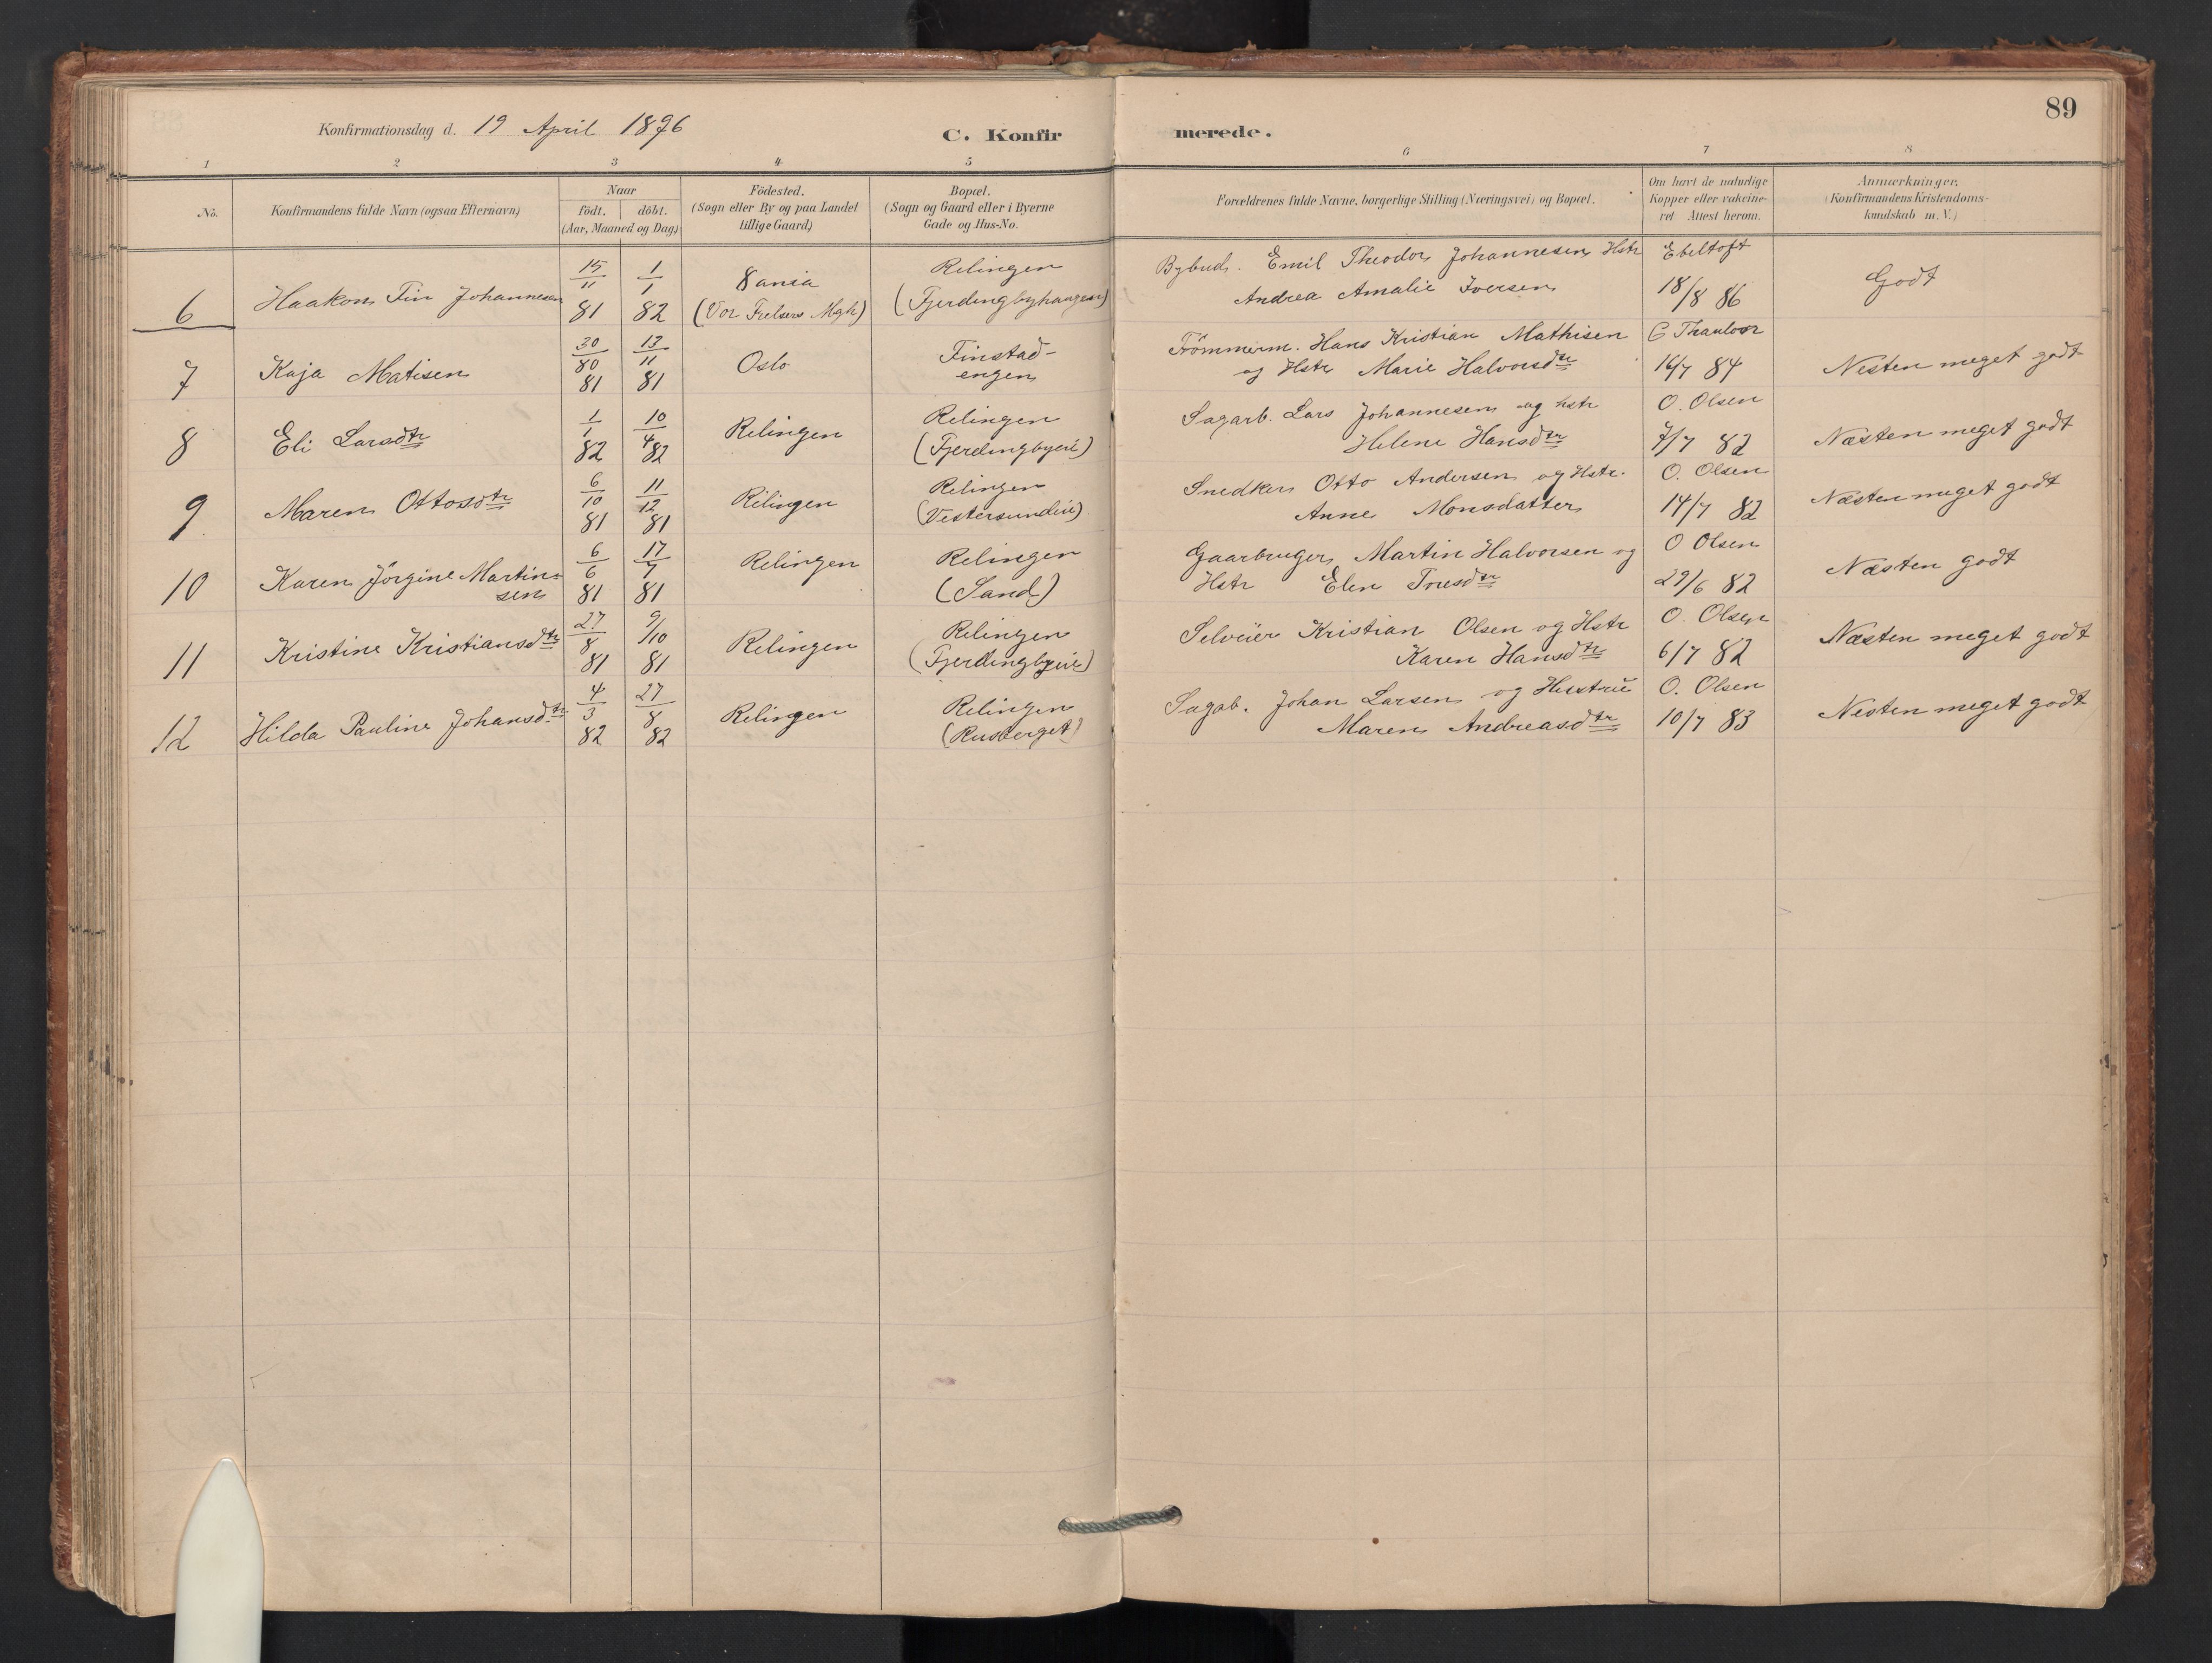 89
Konfirmationsdag d. 19 April 1896
C. Konfirmerede.
1 2 3 4 5 6 7 8
No.
Konfirmandens fulde Navn (ogsaa Efternavn)
Naar
födt. döbt.
(Aar, Maaned og Dag)
Födested.
(Sogn eller By og paa Landet
tillige Gaard)
Bopæl.
(Sogn og Gaard eller i Byerne
Gade og Hus-No.
Forældrenes fulde Navne, borgerlige Stilling (Næringsvei) og Bopæl.
Om havt de naturlige
Kopper eller vakcine-
ret Attest herom.
Anmærkninger.
(Konfirmandens Kristendoms-
kundskab m. V.)
6 Haakon Fin Johannesen 15/11 81 1/1 82 8ania
(Vor Frelsers Mgh)
Relingen
(Fjerdingbyhaugen)
Bybud. Emil Theodor Johannesen Hstr
Andrea Amalie Iversen
Ebeltoft
18/8 86
Godt
7 Kaja Matisen 30/80 81 13/11 81 Oslo
Finstad-
engen
Tömmerm. Hans Kristian Mathisen
og Hstr Marie Halvorsdtr
C Thaulow
16/7 84
Nesten meget godt
8 Eli Larsdtr 1/1 82 10/4 82 Relingen
Relingen
(Fjerdingbyeie)
Sagarb. Lars Johannesen og hstr
Helene Hansdtr
O. Olsen
7/7 82
Næsten meget godt
9 Maren Ottosdtr 6/10 81 11/12 81 Relingen
Relingen
(Vestersundeie)
Snedker Otto Andersen og Hstr.
Anne Monsdatter
O. Olsen
14/7 82
Næsten meget godt
10 Karen Jörgine Martin=
sen
6/6 81 17/7 81 Relingen
Relingen
(Sand)
Gaarbruger Martin Halvorsen og
Hstr Elen Truesdtr
O Olsen
29/6 82
Næsten godt
11 Kristine Kristiansdtr 27/8 81 9/10 81 Relingen
Relingen
(Fjerdingbyeie)
Selveier Kristian Olsen og Hstr
Karen Hansdtr
O. Olsen
6/7 82
Næsten meget godt
12 Hilda Pauline Johansdtr 4/3 82 27/8 82 Relingen
Relingen
(Rusberget)
Sagab. Johan Larsen og Hustrue
Maren Andreasdtr
O. Olsen
10/7 83
Nesten meget godt